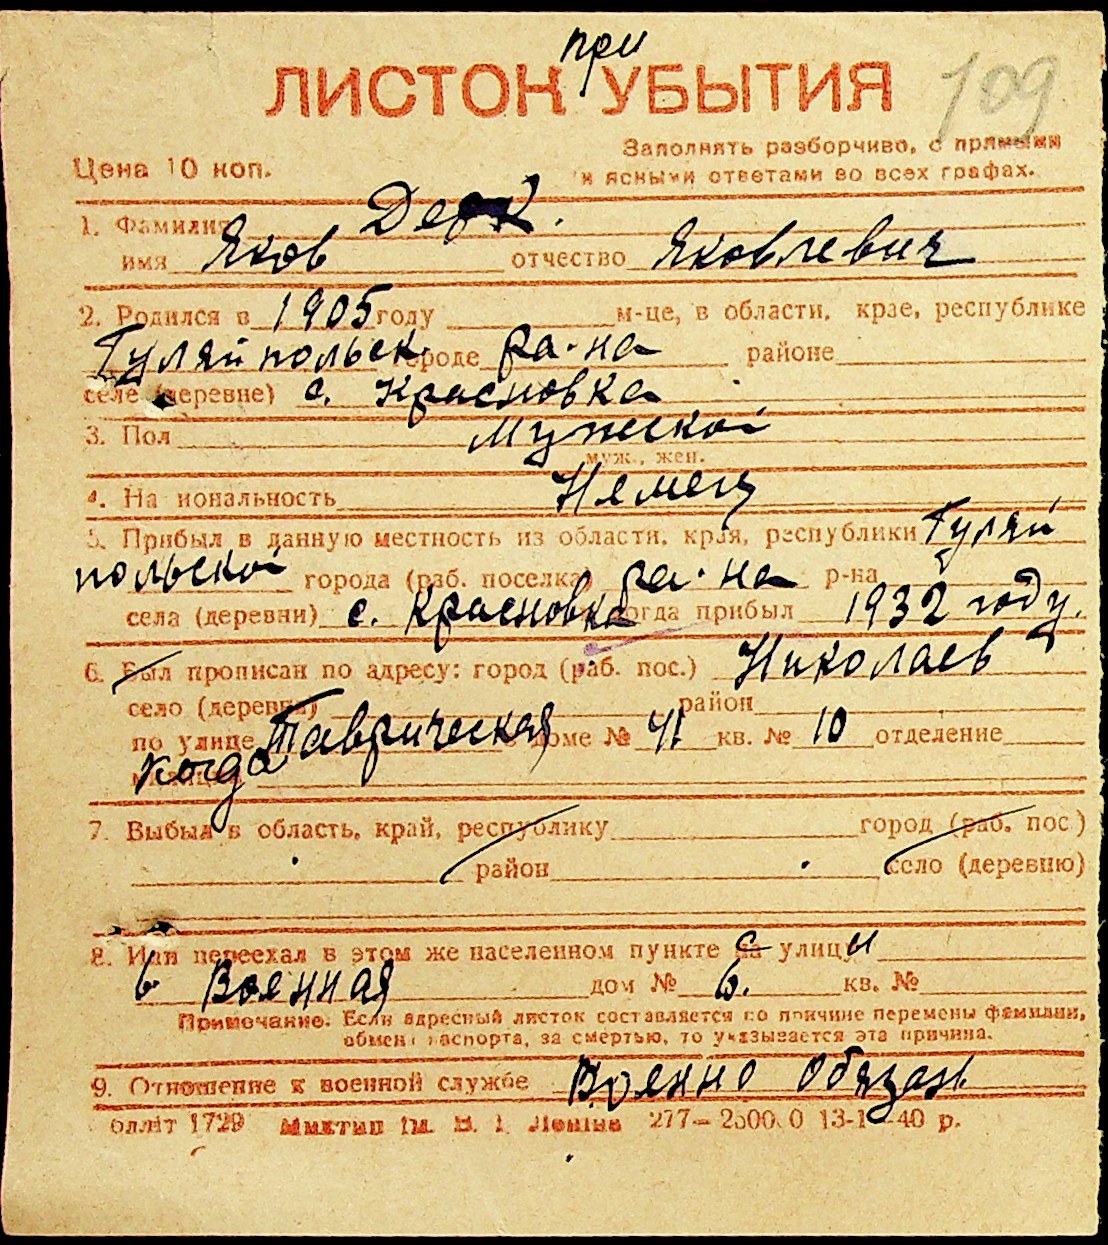 при
ЛИСТОК УБЫТИЯ 109
Цена 10 коп. Заполнять разборчиво, с прямыми
и ясными ответами во всех графах.
1. Фамилия Дерк.
имя Яков отчество Яковлевич
2. Родился в 1905 году м-це, в области, крае, республике
Гуляйпольск. городе ра-на районе
селе (деревне) с. Красновка
3. Пол Мужской
муж., жен.
4. Национальность Немец
5. Прибыл в данную местность из области, края, республики Гуляй
польской города (раб. поселка) ра-на р-на
села (деревни) с. Красновка когда прибыл 1932 году.
6. Был прописан по адресу: город (раб. пос.) Николаев
село (деревня) район
по улице Таврическая в доме № 41 кв. № 10 отделение
когда
7. Выбыл в область, край, республику город (раб. пос)
район село (деревню)
8. Или переехал в этом же населенном пункте с улицы
6. Военная дом № 6. кв. №
Примечание. Если адресный листок составляется по причине перемены фамилии,
обмена паспорта, за смертью, то указывается эта причина.
9. Отношение к военной службе Военно обязан
1729 277— 13-1 —40 р.